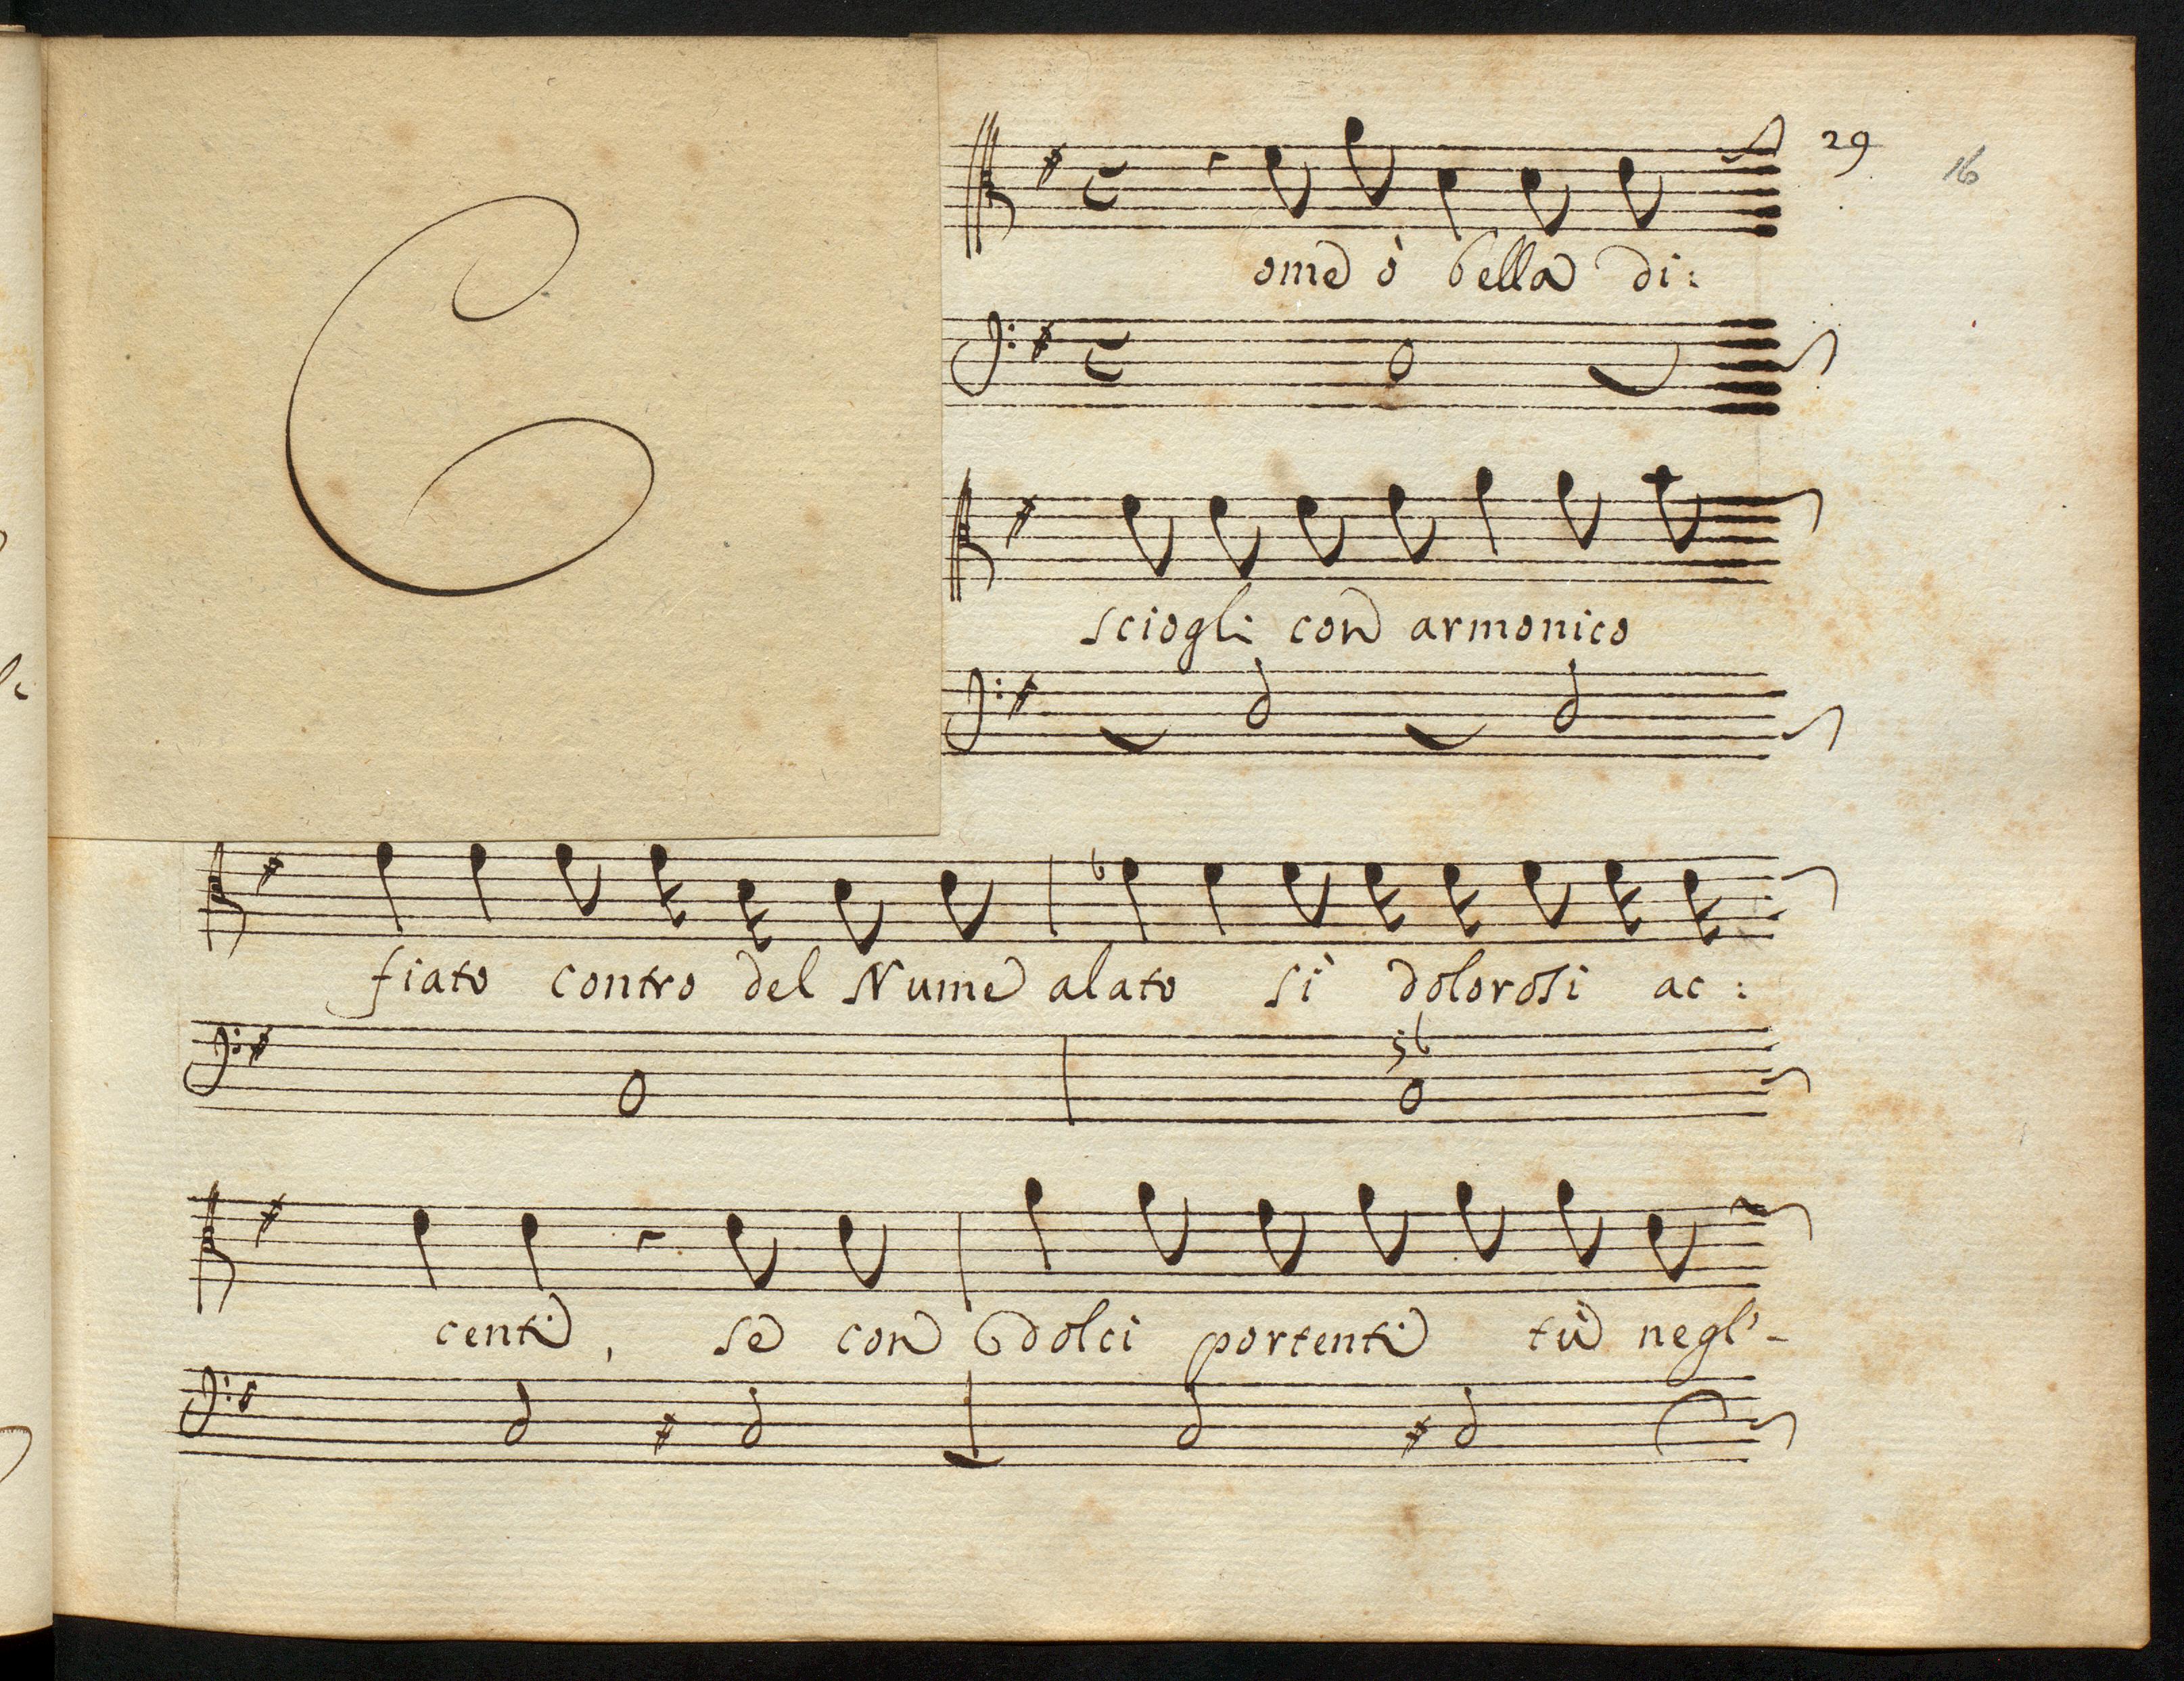 29
16
C
ome ò bella di:
sciogli con armonico
fiato contro del Nume alato sì dolorosi ac:
5b
centi, se con dolci portenti tù negl'-